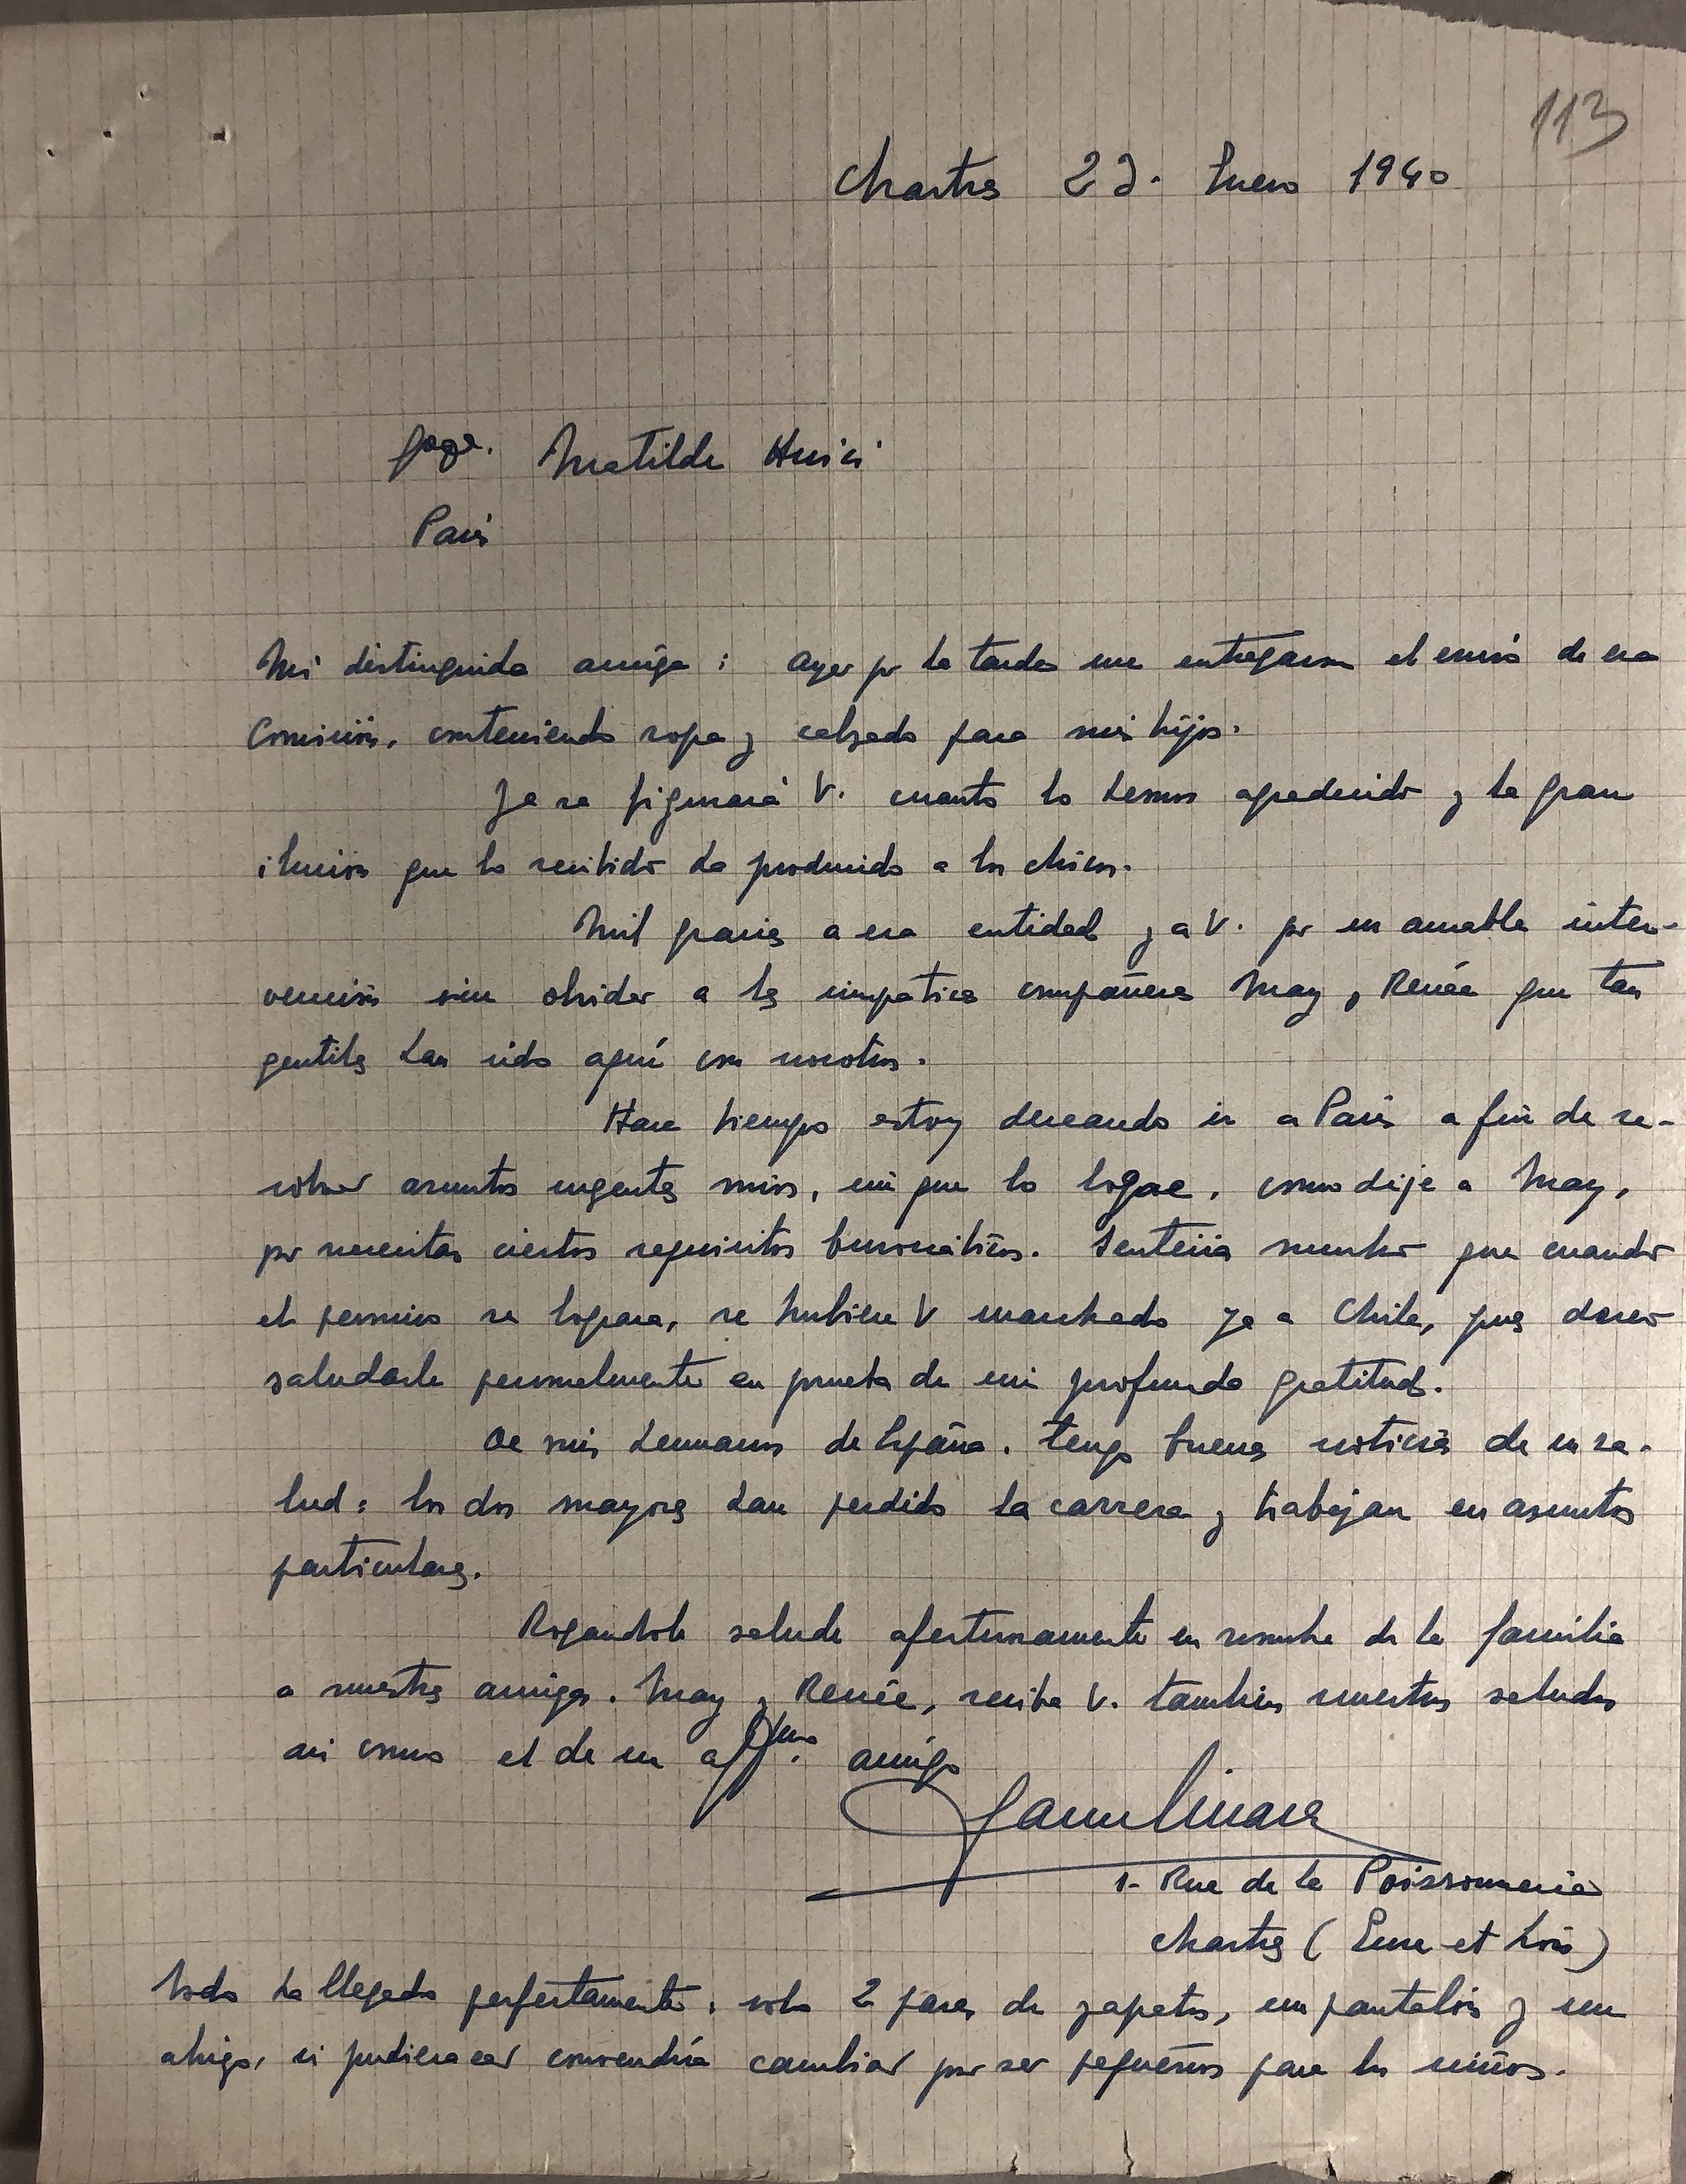 113
Chartres 23. Enero 1940
Matilde Huici
Paris
Mi distinguida amiga: Ayer por la tarde me entregaron el envio de esa
Comisión, conteniendo ropa y calzado para mis hijos.
Ya se figurará V. cuanto lo hemos agradecido y la gran
ilusion que lo recibido ha producido a los chicos.
Mil gracias a esa entidad y a V. por su amable inter-
vención sin olvidar a las simpaticas compañeras May y Renée que tan
gentiles han sido aquí con nosotros.
Hace tiempo estoy deseando ir a Paris a fin de re-
solver asuntos urgentes mios, sin que lo logre, como dije a May,
por necesitar ciertos requisitos burocráticos. Sentiria mucho que cuando
el permiso se lograra, se hubiera V marchado ya a Chile, pues deseo
saludarle personalmente en prueba de mi profunda gratitud.
De mis hermanos de España, tengo buenas noticias de su sa-
lud: los dos mayores han perdido la carrera y trabajan en asuntos
particulares.
Rogandole salude afectuosamente en nombre de la familia
a nuestras amigas. May y Renée, reciba V. tambien nuestros saludos
asi como el de su affmo. amigo
1- Rue de la Poissonnerie
Chartres (Eure et Loir)
Todo ha llegado perfectamente: solo 2 pares de zapatos, un pantalón y un
abrigo, si pudiera ser convendría cambiar por ser pequeños para los niños.